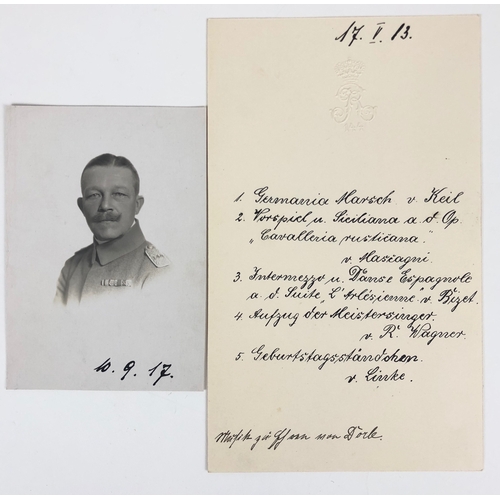 17. V. 13.
1. Germania Marsch v. Keil
2. Vorspiel u. Siciliana a. d. Op.
„Cavalleria rusticana."
v. Mascagni.
3. Intermezzo u. Danse Espagnole
a. d. Suite „L'Arlesienne" v. Bizet.
4. Aufzug der Meistersinger.
v. R. Wagner.
5. Geburtstagsständchen.
v. Linke.
Musik zu Ehren von
10. 9. 17.